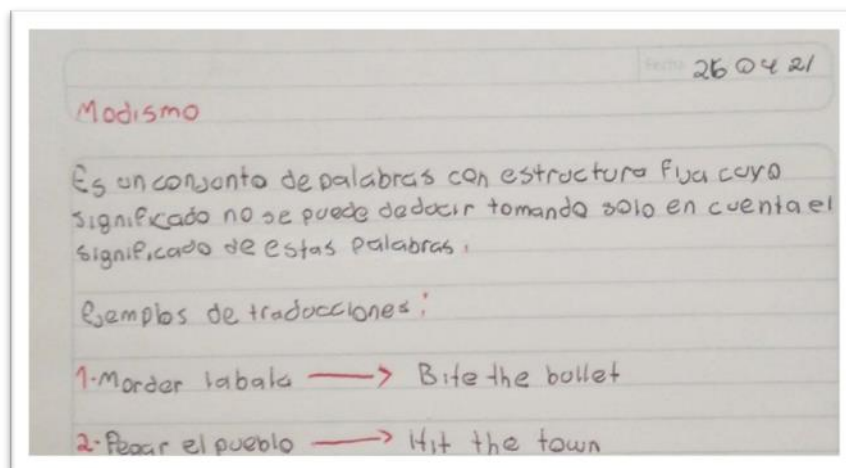 Fecha 26 04 21
Modismo
Es un conjunto de palabras con estructura fija cuyo
significado no se puede deducir tomando solo en cuenta el
significado de estas palabras.
Ejemplos de traducciones:
1-Morder la bala → Bite the bullet
2-Pegar el pueblo → Hit the town